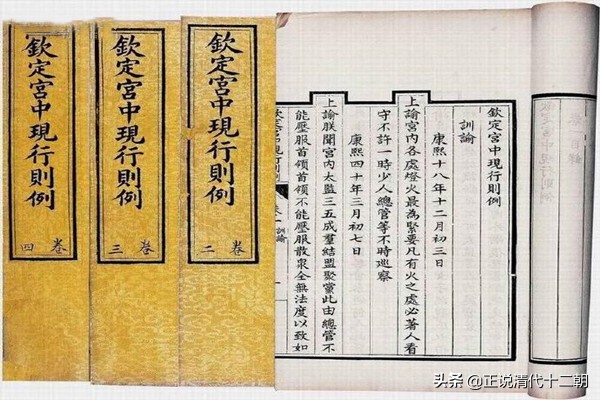 欽定宮中現行則例
訓諭
康熙十八年十二月初三日
上諭宮內各處燈火最為緊要凡有火之處必著人看
守不許一時少人總管等不時巡察
康熙四十年三月初七日
上諭朕聞宮內太監三五成羣結盟聚黨此由總管不
能壓服首領首領不能壓服散衆全無法度以致如
訓諭
欽定宮中現行則例
卷二
欽定宮中現行則例
卷三
欽定宮中現行則例
卷四
头条 @正说清代十二朝